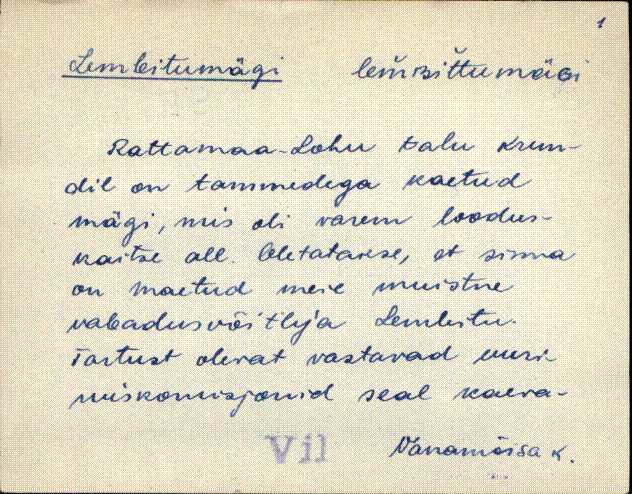 1
Lembitumägi lemʙittumäɢi
Rattamaa-Lohu talu krun-
dil on tammedega kaetud
mägi, mis oli varem loodus-
kaitse all. Oletatakse, et sinna
on maetud meie muistne
vabadusvõitleja Lembitu.
Tartust olevat vastavad uuri-
miskomisjonid seal kaeva-
Vil Vanamõisa k.